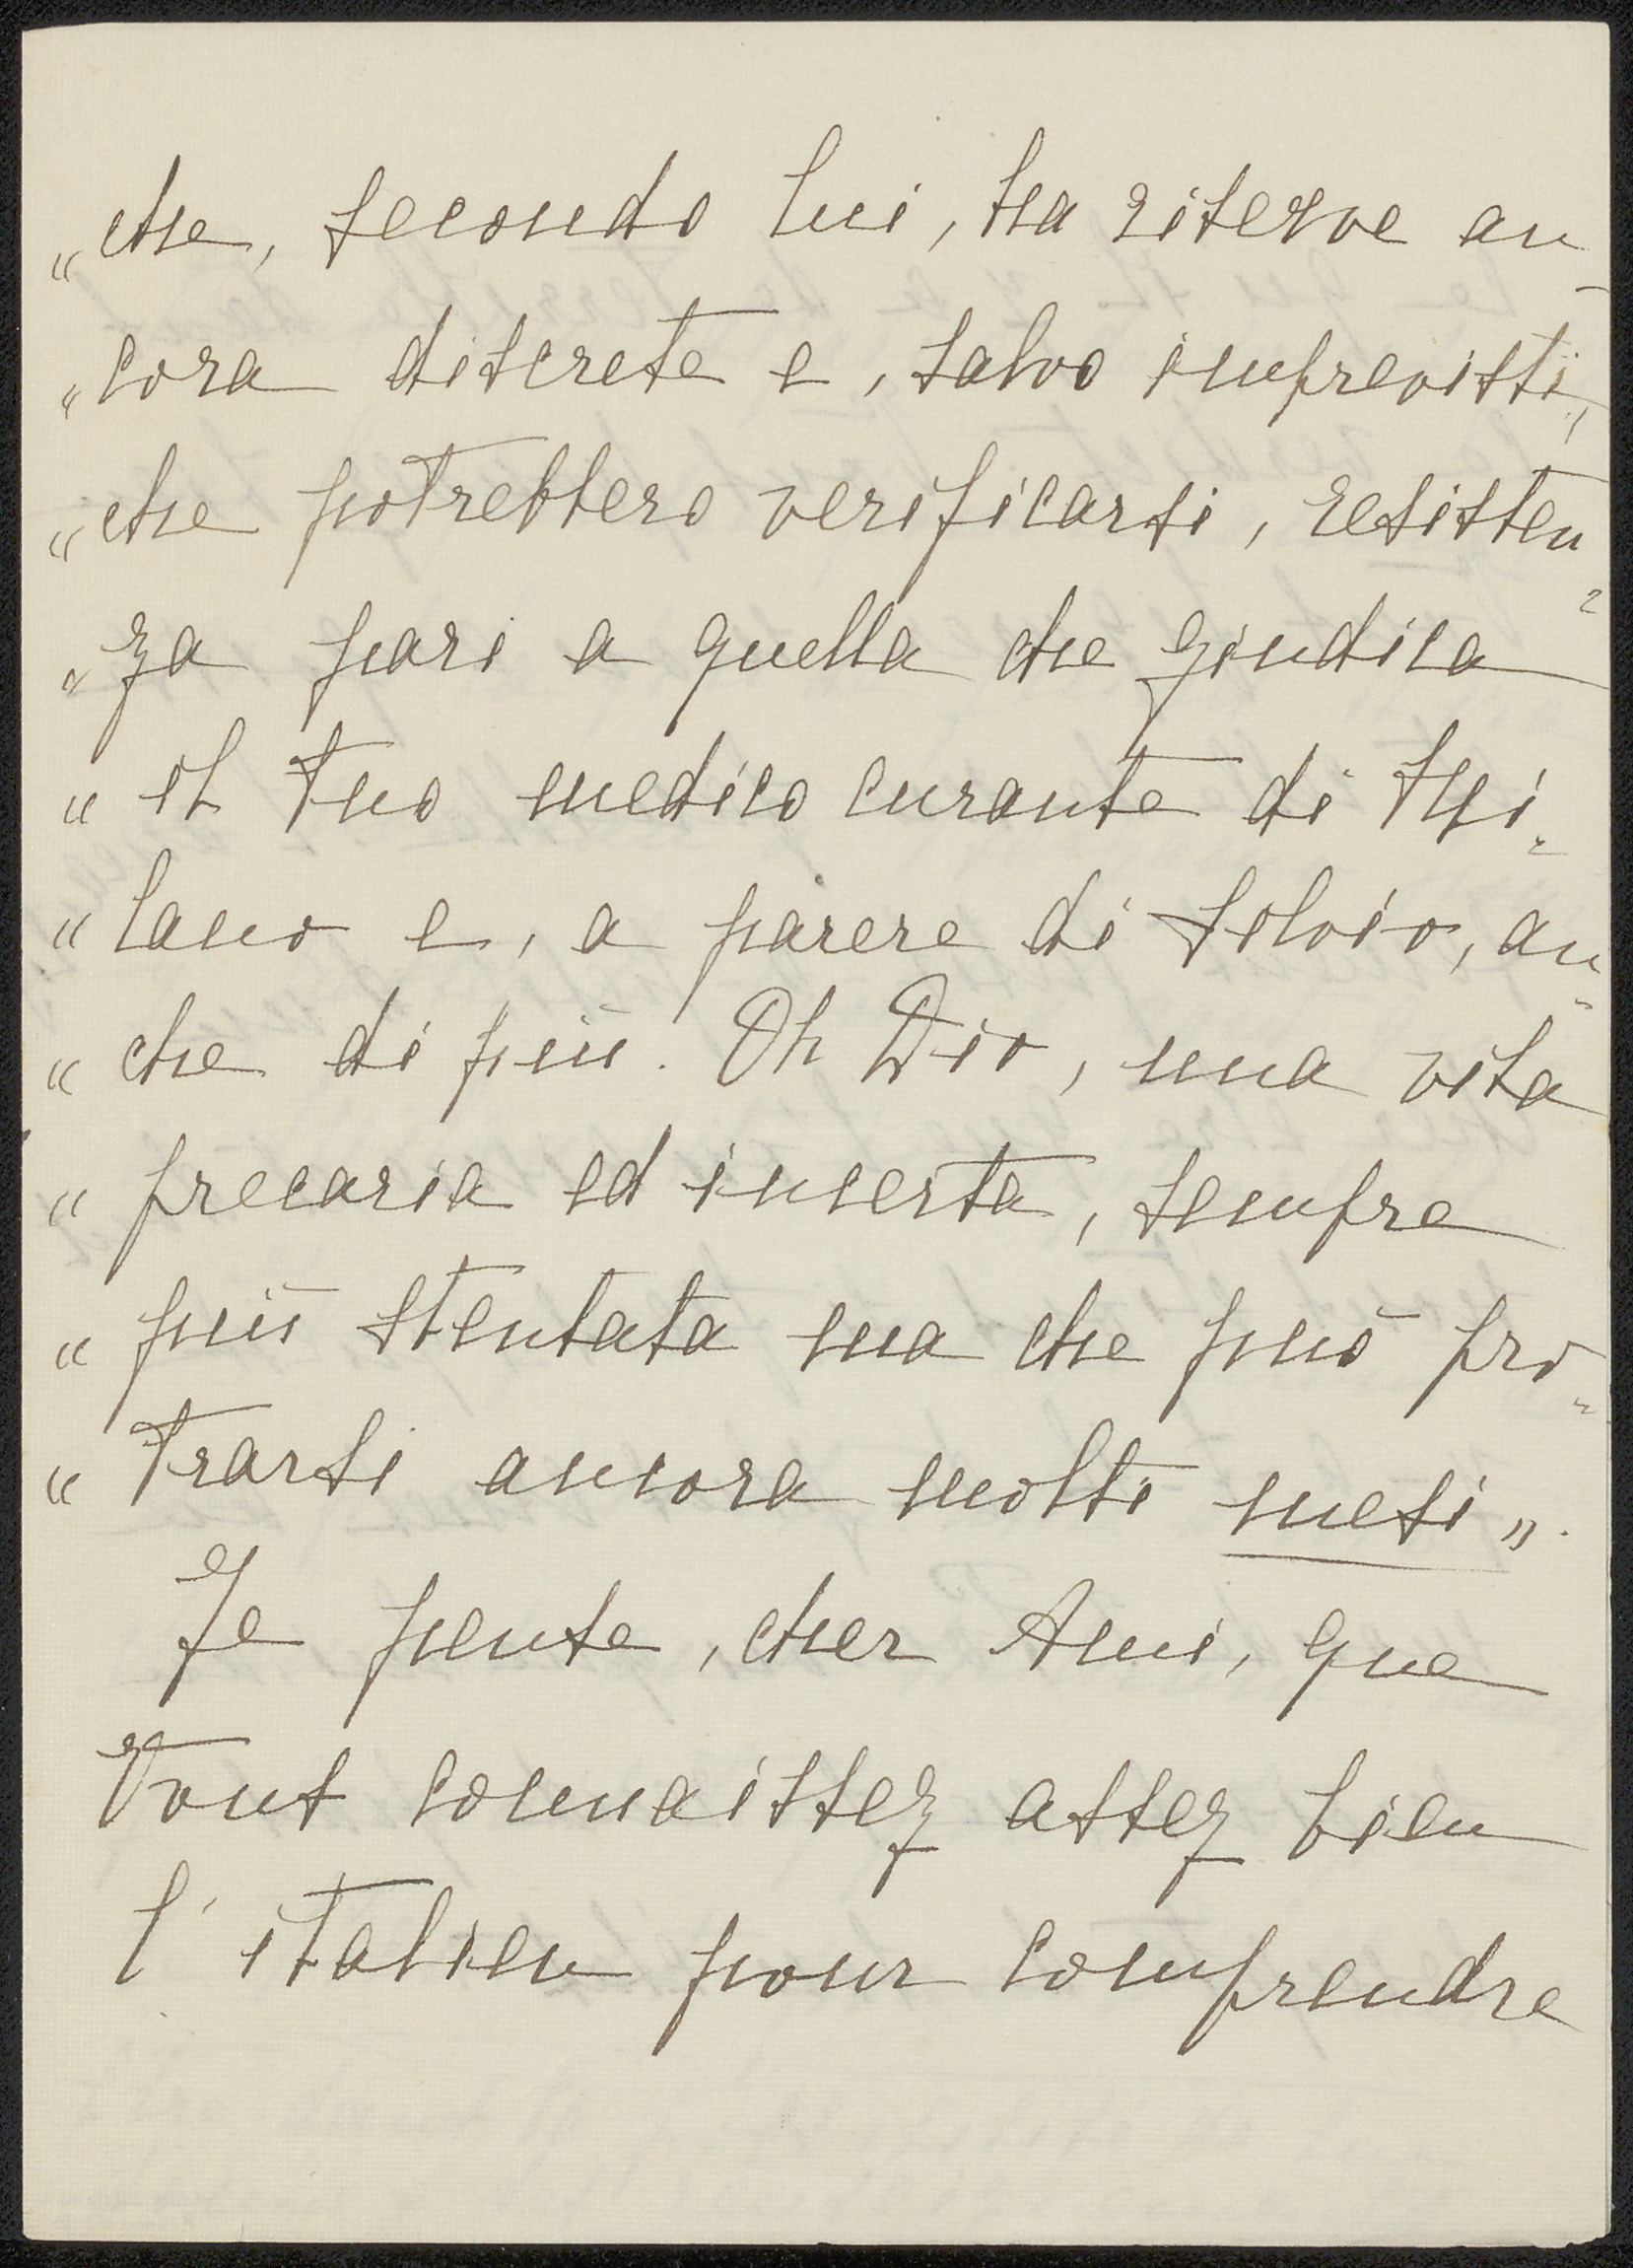 „che, secondo lui, ha riserve an-
„cora discrete e, salvo imprevisti,
„che potrebbero verificarsi, resisten-
„za pari a quella che giudica
„il tuo medico curante di Mi-
„lano e, a parere di Silvio, an-
„che di più. Oh Dio, una vita
„precaria ed incerta, sempre
„più stentata ma che può pro-
„trarsi ancora molti mesi„.
Je pense, cher Ami, que
Vous connaissez assez bien
l'italien pour comprendre